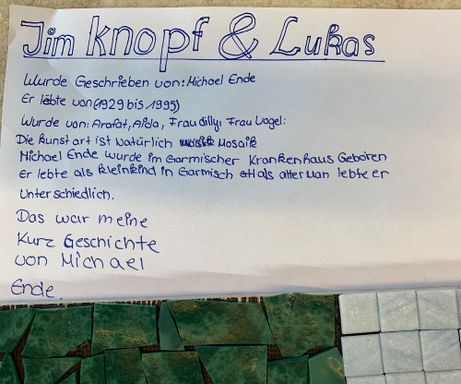 Jim Knopf & Lukas
Wurde Geschrieben von: Michael Ende
Er lebte von (1929 bis 1995)
Wurde von: Arafat, Aida, Frau dilly, Frau Vogel:
Die kunst art ist Natürlich Mosaik
Michael Ende wurde im Garmischer Krankenhaus Geboren
Er lebte als kleinkind in Garmisch als alter Man lebte er
Unterschiedlich.
Das war meine
Kurz Geschichte
von Michael
Ende.